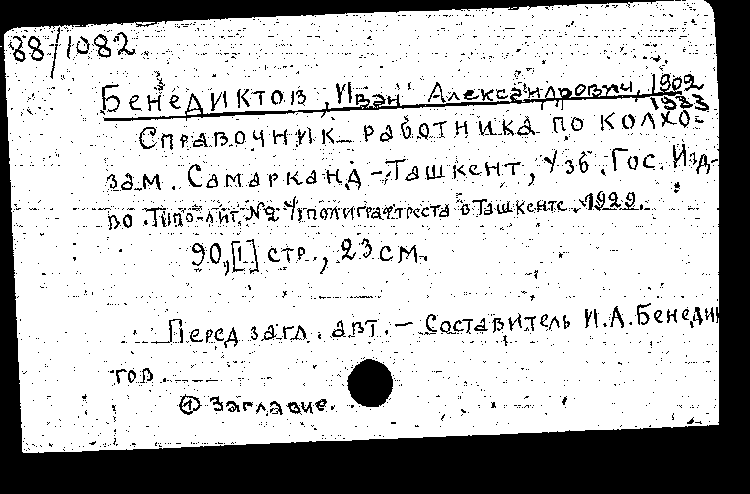 88/1082
Бенедиктов, Иван Александрович, 1902
1983
Справочник работника по колхо-
зам. Самарканд-Ташкент, Узб. Гос. Изд-
во. Типо-лит. №2 Узполиграфтреста в Ташкенте. 1929.
90,[1] стр., 23 см.
Перед загл. авт. — Составитель И.А. Бенедик
тов.
① Заглавие.